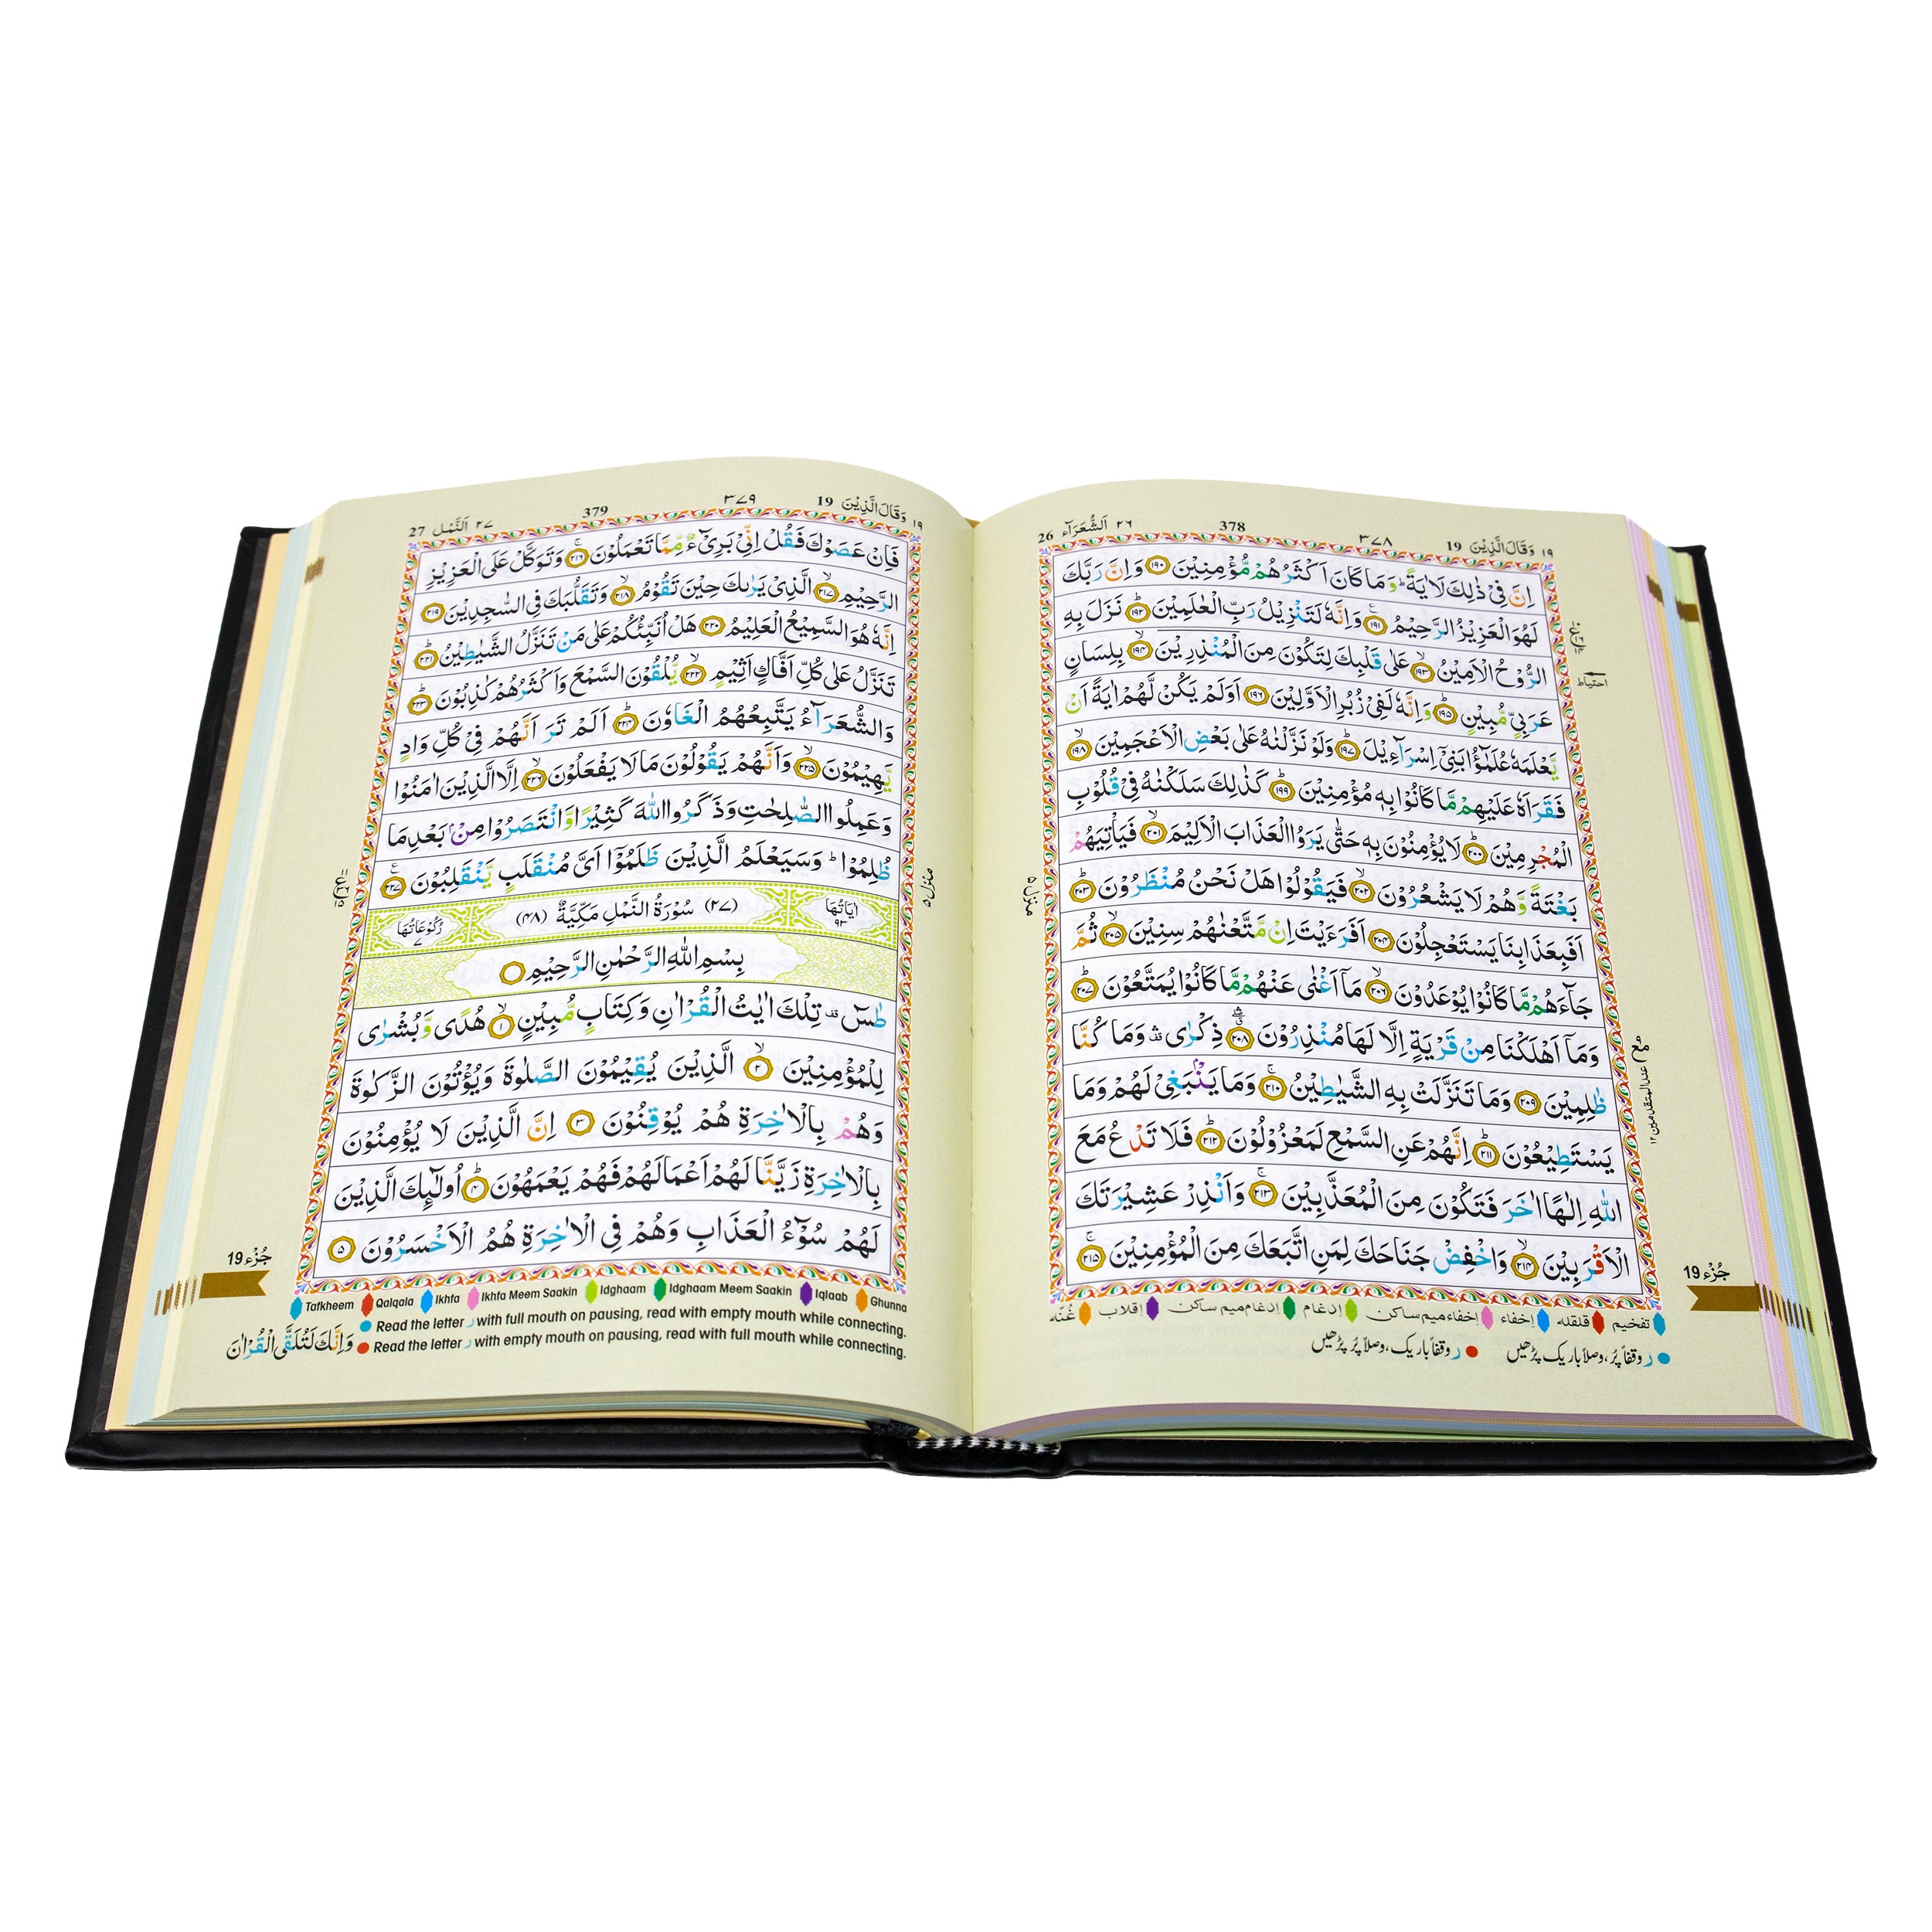 ۱۹ وَقَالَ الَّذِيْنَ 19
۳۷۸
378
۲۶ اَلشُّعَرَآء 26
اِنَّ فِىْ ذٰلِكَ لَاٰيَةً ؕ وَمَا كَانَ اَكْثَرُهُمْ مُّؤْمِنِيْنَ ۱۹۰ وَاِنَّ رَبَّكَ
لَهُوَ الْعَزِيْزُ الرَّحِيْمُ ۱۹۱ وَاِنَّهٗ لَتَنْزِيْلُ رَبِّ الْعٰلَمِيْنَ ۱۹۲ نَزَلَ بِهِ
الرُّوْحُ الْاَمِيْنُ ۱۹۳ عَلٰى قَلْبِكَ لِتَكُوْنَ مِنَ الْمُنْذِرِيْنَ ۱۹۴ بِلِسَانٍ
عَرَبِىٍّ مُّبِيْنٍ ۱۹۵ وَاِنَّهٗ لَفِىْ زُبُرِ الْاَوَّلِيْنَ ۱۹۶ اَوَلَمْ يَكُنْ لَّهُمْ اٰيَةً اَنْ
يَّعْلَمَهٗ عُلَمٰٓؤُا بَنِىْٓ اِسْرَآءِيْلَ ۱۹۷ وَلَوْ نَزَّلْنٰهُ عَلٰى بَعْضِ الْاَعْجَمِيْنَ ۱۹۸
فَقَرَاَهٗ عَلَيْهِمْ مَّا كَانُوْا بِهٖ مُؤْمِنِيْنَ ۱۹۹ كَذٰلِكَ سَلَكْنٰهُ فِىْ قُلُوْبِ
الْمُجْرِمِيْنَ ۲۰۰ لَا يُؤْمِنُوْنَ بِهٖ حَتّٰى يَرَوُا الْعَذَابَ الْاَلِيْمَ ۲۰۱ فَيَاْتِيَهُمْ
بَغْتَةً وَّهُمْ لَا يَشْعُرُوْنَ ۲۰۲ فَيَقُوْلُوْا هَلْ نَحْنُ مُنْظَرُوْنَ ۲۰۳
اَفَبِعَذَابِنَا يَسْتَعْجِلُوْنَ ۲۰۴ اَفَرَءَيْتَ اِنْ مَّتَّعْنٰهُمْ سِنِيْنَ ۲۰۵ ثُمَّ
جَآءَهُمْ مَّا كَانُوْا يُوْعَدُوْنَ ۲۰۶ مَآ اَغْنٰى عَنْهُمْ مَّا كَانُوْا يُمَتَّعُوْنَ ۲۰۷
وَمَآ اَهْلَكْنَا مِنْ قَرْيَةٍ اِلَّا لَهَا مُنْذِرُوْنَ ۲۰۸ ذِكْرٰى وَمَا كُنَّا
ظٰلِمِيْنَ ۲۰۹ وَمَا تَنَزَّلَتْ بِهِ الشَّيٰطِيْنُ ۲۱۰ وَمَا يَنْۢبَغِىْ لَهُمْ وَمَا
يَسْتَطِيْعُوْنَ ۲۱۱ اِنَّهُمْ عَنِ السَّمْعِ لَمَعْزُوْلُوْنَ ۲۱۲ فَلَا تَدْعُ مَعَ
اللّٰهِ اِلٰهًا اٰخَرَ فَتَكُوْنَ مِنَ الْمُعَذَّبِيْنَ ۲۱۳ وَاَنْذِرْ عَشِيْرَتَكَ
الْاَقْرَبِيْنَ ۲۱۴ وَاخْفِضْ جَنَاحَكَ لِمَنِ اتَّبَعَكَ مِنَ الْمُؤْمِنِيْنَ ۲۱۵
احتياط
منزل ۵
جُزْء 19
تفخيم قلقله إخفاء إخفاء ميم ساكن إدغام إدغام ميم ساكن إقلاب غُنّه
ر وقفاً پُر، وصلاً باریک پڑھیں ر وقفاً باریک، وصلاً پُر پڑھیں
۱۹ وَقَالَ الَّذِيْنَ 19
۳۷۹
379
۲۷ اَلنَّمْل 27
فَاِنْ عَصَوْكَ فَقُلْ اِنِّىْ بَرِىْٓءٌ مِّمَّا تَعْمَلُوْنَ ۲۱۶ وَتَوَكَّلْ عَلَى الْعَزِيْزِ
الرَّحِيْمِ ۲۱۷ الَّذِىْ يَرٰىكَ حِيْنَ تَقُوْمُ ۲۱۸ وَتَقَلُّبَكَ فِى السّٰجِدِيْنَ ۲۱۹
اِنَّهٗ هُوَ السَّمِيْعُ الْعَلِيْمُ ۲۲۰ هَلْ اُنَبِّئُكُمْ عَلٰى مَنْ تَنَزَّلُ الشَّيٰطِيْنُ ۲۲۱
تَنَزَّلُ عَلٰى كُلِّ اَفَّاكٍ اَثِيْمٍ ۲۲۲ يُّلْقُوْنَ السَّمْعَ وَاَكْثَرُهُمْ كٰذِبُوْنَ ۲۲۳
وَالشُّعَرَآءُ يَتَّبِعُهُمُ الْغَاوٗنَ ۲۲۴ اَلَمْ تَرَ اَنَّهُمْ فِىْ كُلِّ وَادٍ
يَّهِيْمُوْنَ ۲۲۵ وَاَنَّهُمْ يَقُوْلُوْنَ مَا لَا يَفْعَلُوْنَ ۲۲۶ اِلَّا الَّذِيْنَ اٰمَنُوْا
وَعَمِلُوا الصّٰلِحٰتِ وَذَكَرُوا اللّٰهَ كَثِيْرًا وَّانْتَصَرُوْا مِنْۢ بَعْدِ مَا
ظُلِمُوْا ؕ وَسَيَعْلَمُ الَّذِيْنَ ظَلَمُوْٓا اَىَّ مُنْقَلَبٍ يَّنْقَلِبُوْنَ ۲۲۷
اٰيَاتُهَا ۹۳ (۲۷) سُوْرَةُ النَّمْلِ مَكِّيَّةٌ (۴۸) رُكُوْعَاتُهَا ۷
بِسْمِ اللّٰهِ الرَّحْمٰنِ الرَّحِيْمِ
طٰسٓ تِلْكَ اٰيٰتُ الْقُرْاٰنِ وَكِتَابٍ مُّبِيْنٍ ۱ هُدًى وَّبُشْرٰى
لِلْمُؤْمِنِيْنَ ۲ الَّذِيْنَ يُقِيْمُوْنَ الصَّلٰوةَ وَيُؤْتُوْنَ الزَّكٰوةَ
وَهُمْ بِالْاٰخِرَةِ هُمْ يُوْقِنُوْنَ ۳ اِنَّ الَّذِيْنَ لَا يُؤْمِنُوْنَ
بِالْاٰخِرَةِ زَيَّنَّا لَهُمْ اَعْمَالَهُمْ فَهُمْ يَعْمَهُوْنَ ۴ اُولٰٓئِكَ الَّذِيْنَ
لَهُمْ سُوْٓءُ الْعَذَابِ وَهُمْ فِى الْاٰخِرَةِ هُمُ الْاَخْسَرُوْنَ ۵
منزل ۵
جُزْء 19
Tafkheem Qalqala Ikhfa Ikhfa Meem Saakin Idghaam Idghaam Meem Saakin Iqlaab Ghunna
Read the letter ر with full mouth on pausing, read with empty mouth while connecting.
Read the letter ر with empty mouth on pausing, read with full mouth while connecting.
وَاِنَّكَ لَتُلَقَّى الْقُرْاٰنَ